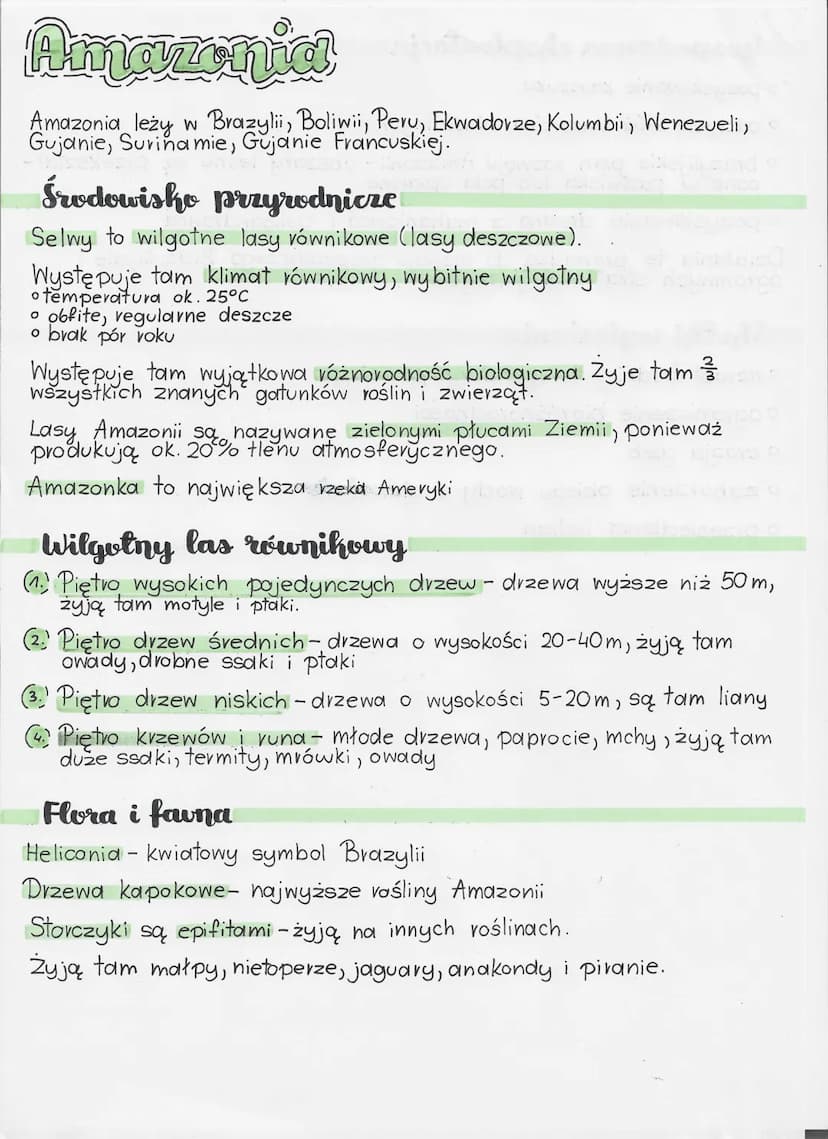 Amazonia
Amazonia leży w Brazylii, Boliwii, Peru, Ekwadorze, Kolumbii, Wenezueli,
Gujanie, Surinamie, Gujanie Francuskiej.
Środowisko przyrodnicze
Selwy to wilgotne lasy równikowe (lasy deszczowe).
Występuje tam klimat równikowy, wybitnie wilgotny
• temperatura ok. 25°C
• obfite, regularne deszcze
• brak pór roku
Występuje tam wyjątkowa różnorodność biologiczna. Żyje tam 2/3
wszystkich znanych gatunków roślin i zwierząt.
Lasy Amazonii są nazywane zielonymi płucami Ziemii, ponieważ
produkują ok. 20% tlenu atmosferycznego.
Amazonka to największa rzeka Ameryki
Wilgotny las równikowy
1. Piętro wysokich pojedynczych drzew - drzewa wyższe niż 50 m,
żyją tam motyle i ptaki.
2. Piętro drzew średnich - drzewa o wysokości 20-40m, żyją tam
owady, drobne ssaki i ptaki
3. Piętro drzew niskich - drzewa o wysokości 5-20m, są tam liany
4. Piętro krzewów i runa - młode drzewa, paprocie, mchy, żyją tam
duże ssaki, termity, mrówki, owady
Flora i fauna
Heliconia - kwiatowy symbol Brazylii
Drzewa kapokowe - najwyższe rośliny Amazonii
Storczyki są epifitami - żyją na innych roślinach.
Żyją tam małpy, nietoperze, jaguary, anakondy i piranie.